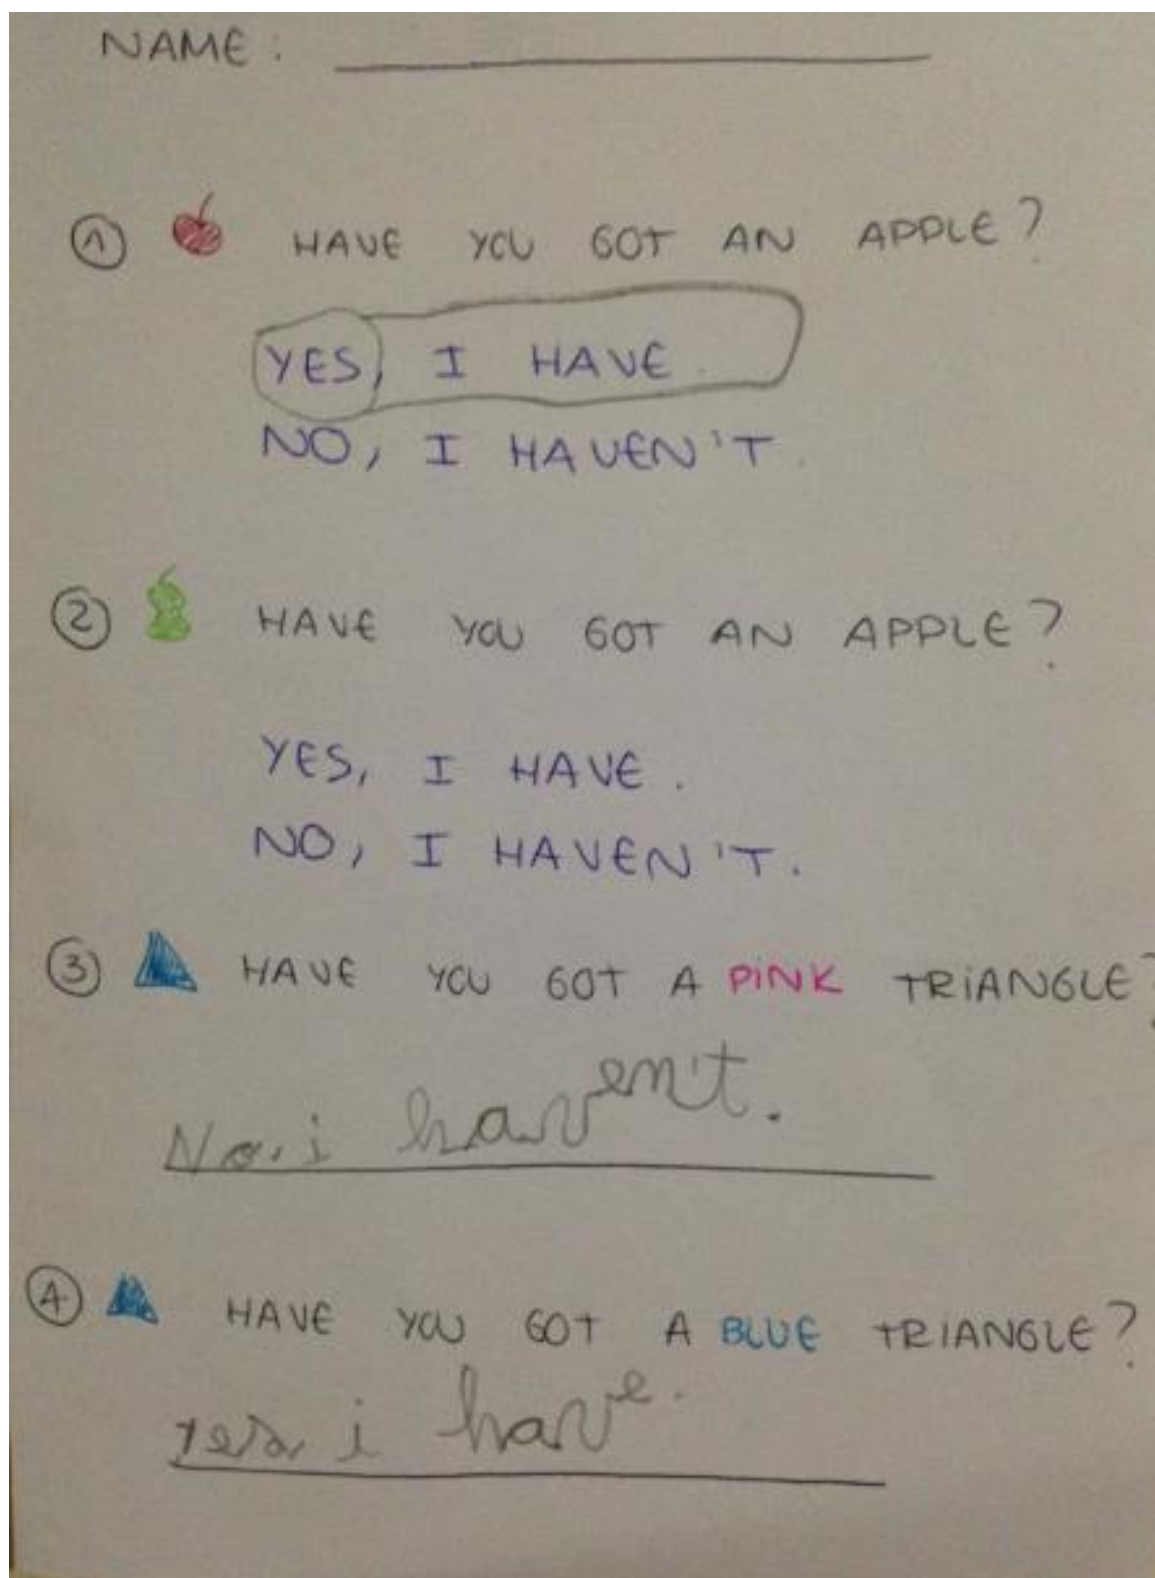 NAME: 
① HAVE YOU GOT AN APPLE?
YES, I HAVE.
NO, I HAVEN'T.
② HAVE YOU GOT AN APPLE?
YES, I HAVE.
NO, I HAVEN'T.
③ HAVE YOU GOT A PINK TRIANGLE?
No, i haven't.
④ HAVE YOU GOT A BLUE TRIANGLE?
yes, i have.